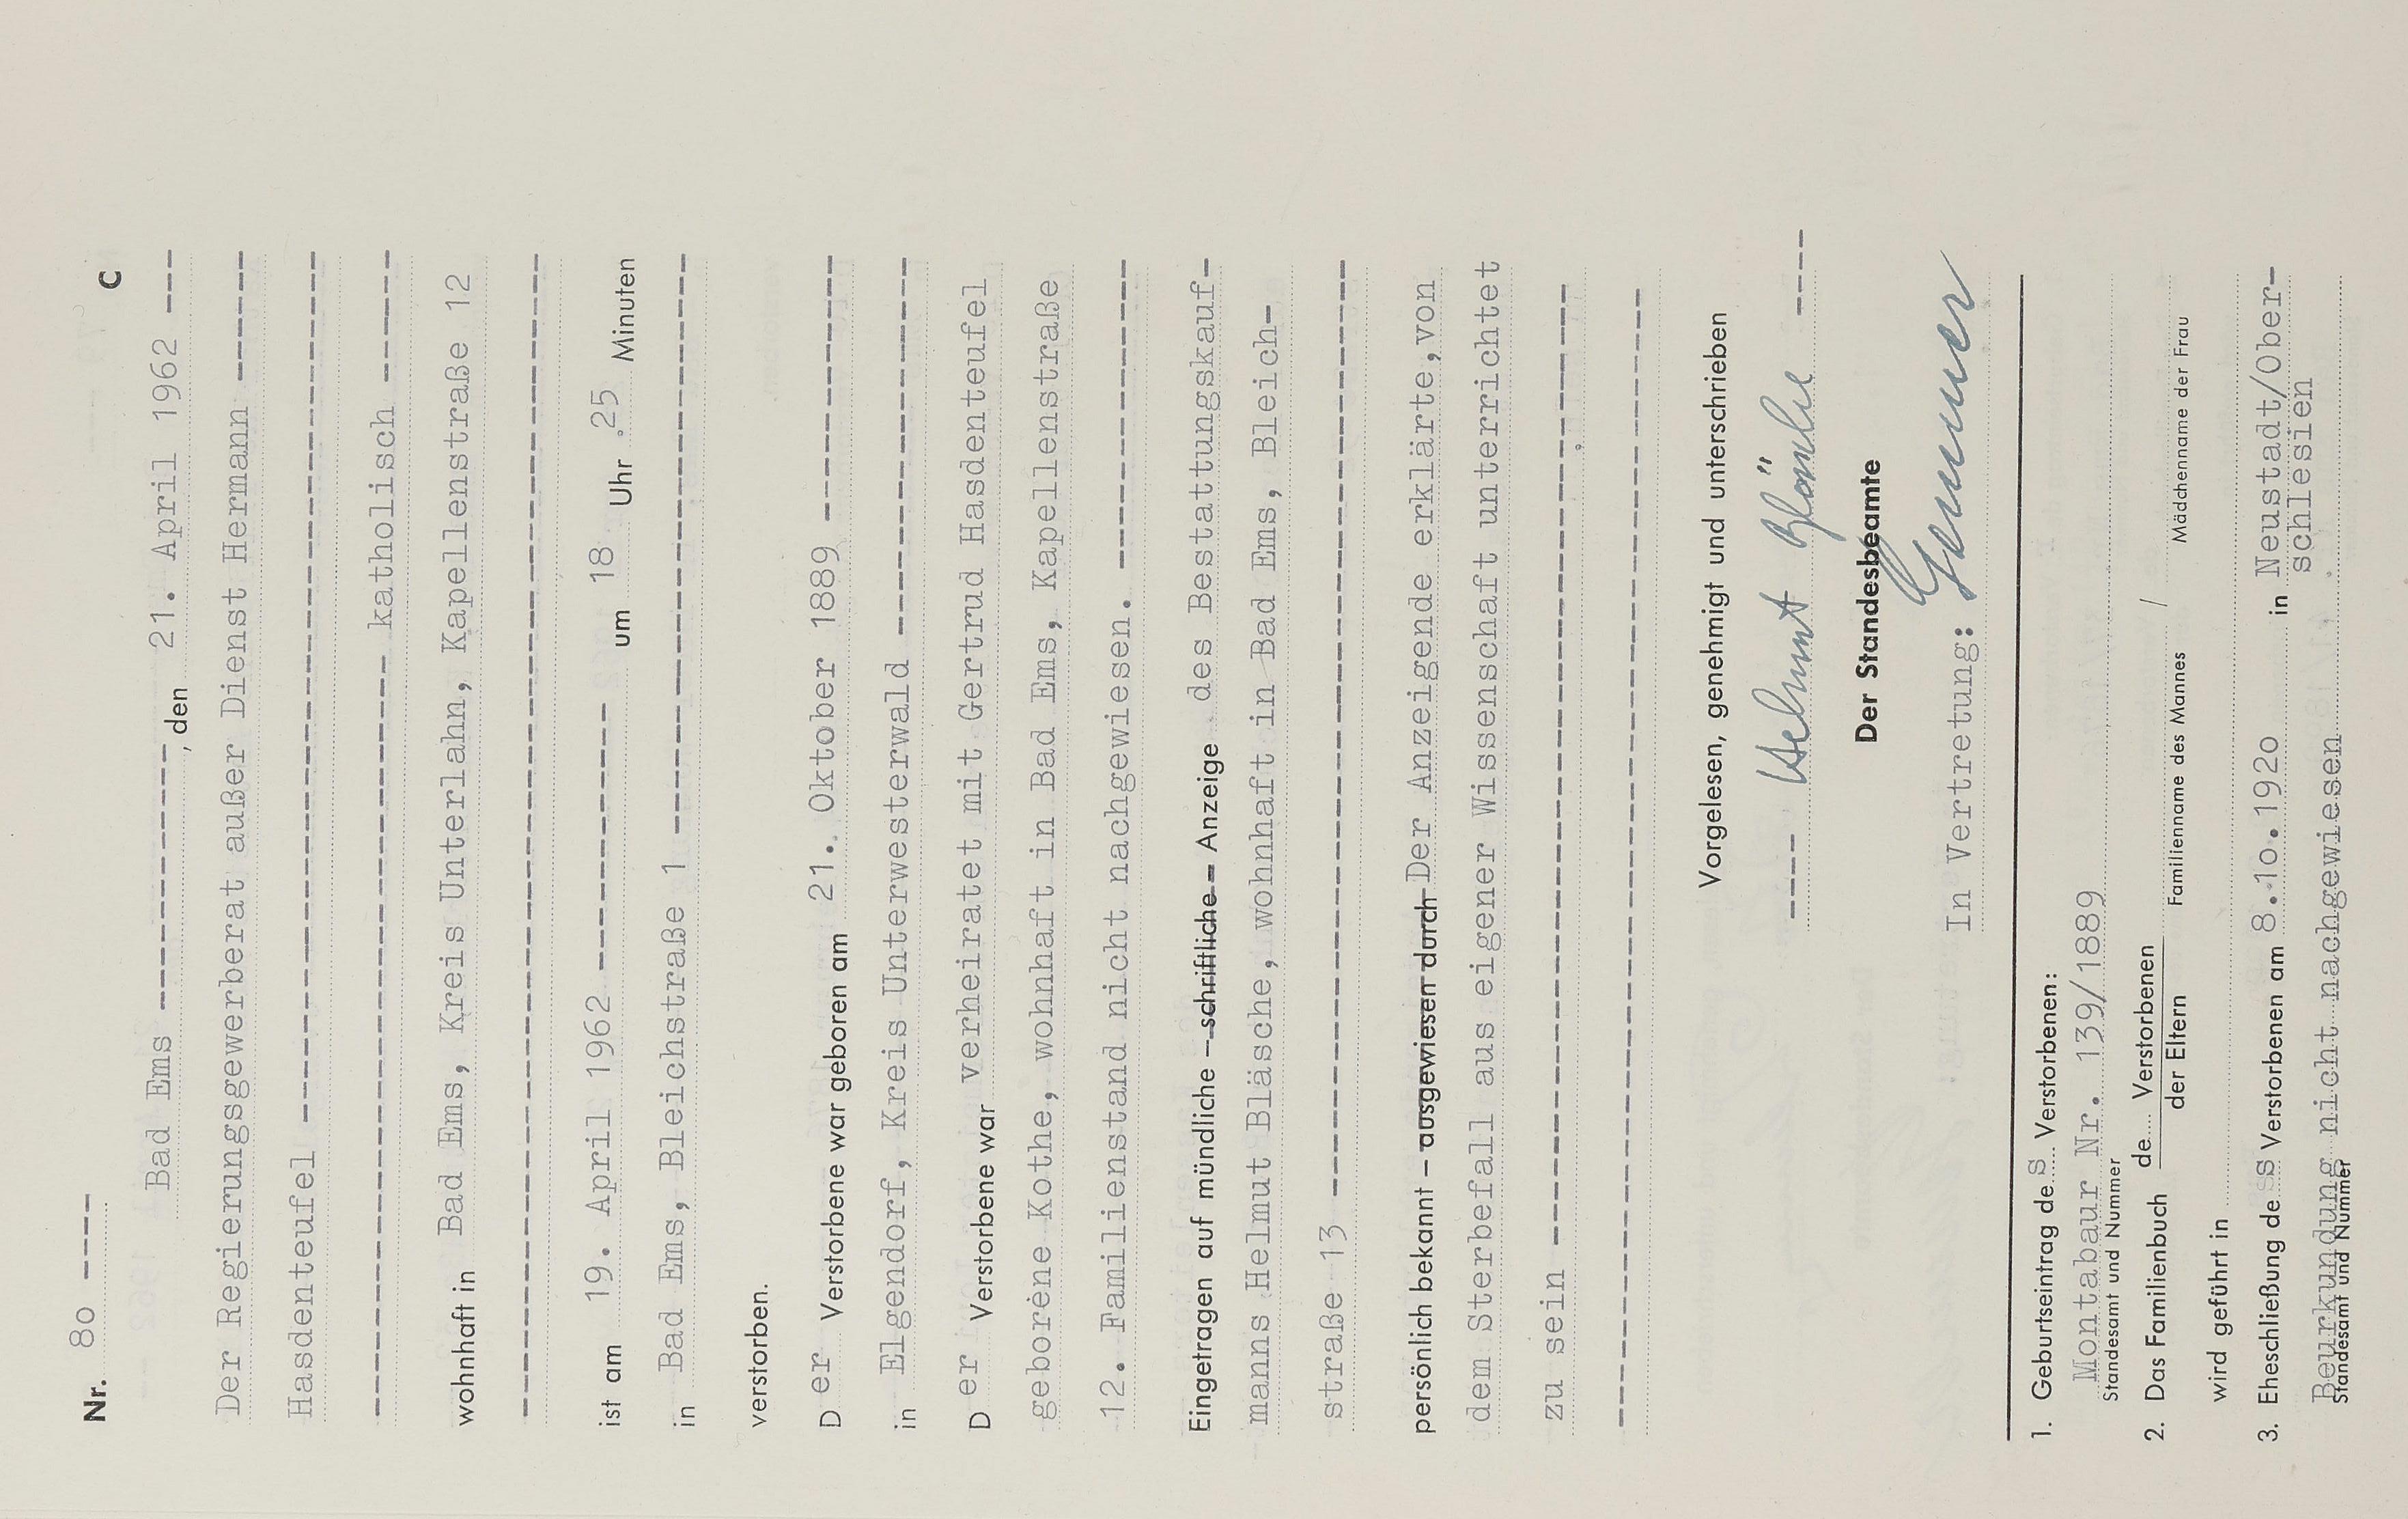 Nr. 80 ----
C
Bad Ems -------------, den 21. April 1962 ---
Der Regierungsgewerberat außer Dienst Hermann ------
Hasdenteufel ------------------------------------------
------------------------------------- katholisch ------
wohnhaft in Bad Ems, Kreis Unterlahn, Kapellenstraße 12
--------------------------------------------------------
ist am 19. April 1962 ------------- um 18 Uhr 25 Minuten
in Bad Ems, Bleichstraße 1 ----------------------------
verstorben.
D er Verstorbene war geboren am 21. Oktober 1889 -------------
in Elgendorf, Kreis Unterwesterwald ------------------
D er Verstorbene war verheiratet mit Gertrud Hasdenteufel
geborene Kothe, wohnhaft in Bad Ems, Kapellenstraße
12. Familienstand nicht nachgewiesen. ---------------
Eingetragen auf mündliche – schriftliche – Anzeige des Bestattungskauf-
manns Helmut Bläsche, wohnhaft in Bad Ems, Bleich-
straße 13 ---------------------------------------------
persönlich bekannt – ausgewiesen durch Der Anzeigende erklärte,von
dem Sterbefall aus eigener Wissenschaft unterrichtet
zu sein -----------------------------------------------
-------------------------------------------------------
Vorgelesen, genehmigt und unterschrieben
---- Helmut Bläsche ----
Der Standesbeamte
In Vertretung:
1. Geburtseintrag des Verstorbenen:
Montabaur Nr. 139/1889
Standesamt und Nummer
2. Das Familienbuch de.... Verstorbenen /
der Eltern Familienname des Mannes Mädchenname der Frau
wird geführt in
3. Eheschließung des Verstorbenen am 8.10.1920 in Neustadt/Ober-
schlesien
Beurkundung nicht nachgewiesen
Standesamt und Nummer